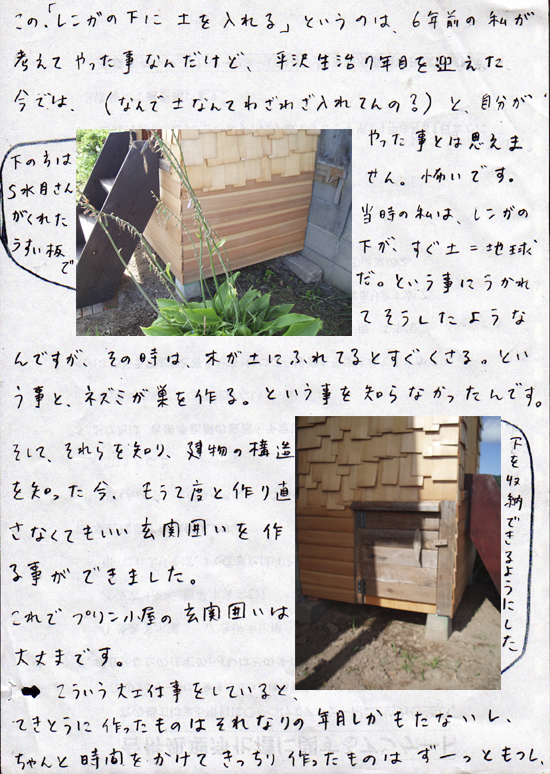 この、「レンガの下に土を入れる」というのは、6年前の私が
考えてやった事なんだけど、平沢生活7年目を迎えた
今では、(なんで土なんてわざわざ入れてんの?)と、自分が
やった事とは思えま
せん。怖いです。
当時の私は、レンガの
下が、すぐ土=地球
だ。という事にうかれ
てそうしたような
下の方は
S水月さん
がくれた
うすい板
で
んですが、その時は、木が土にふれてるとすぐくさる。とい
う事と、ネズミが巣を作る。という事を知らなかったんです。
そして、それらを知り、建物の構造
を知った今、もう2度と作り直
さなくてもいい玄関囲いを作
る事ができました。
これでプリン小屋の玄関囲いは
大丈夫です。
下を収納できるようにした
➡こういう大工仕事をしていると
てきとうに作ったものはそれなりの年月しかもたないし、
ちゃんと時間をかけてきっちり作ったものはずーっともつし、